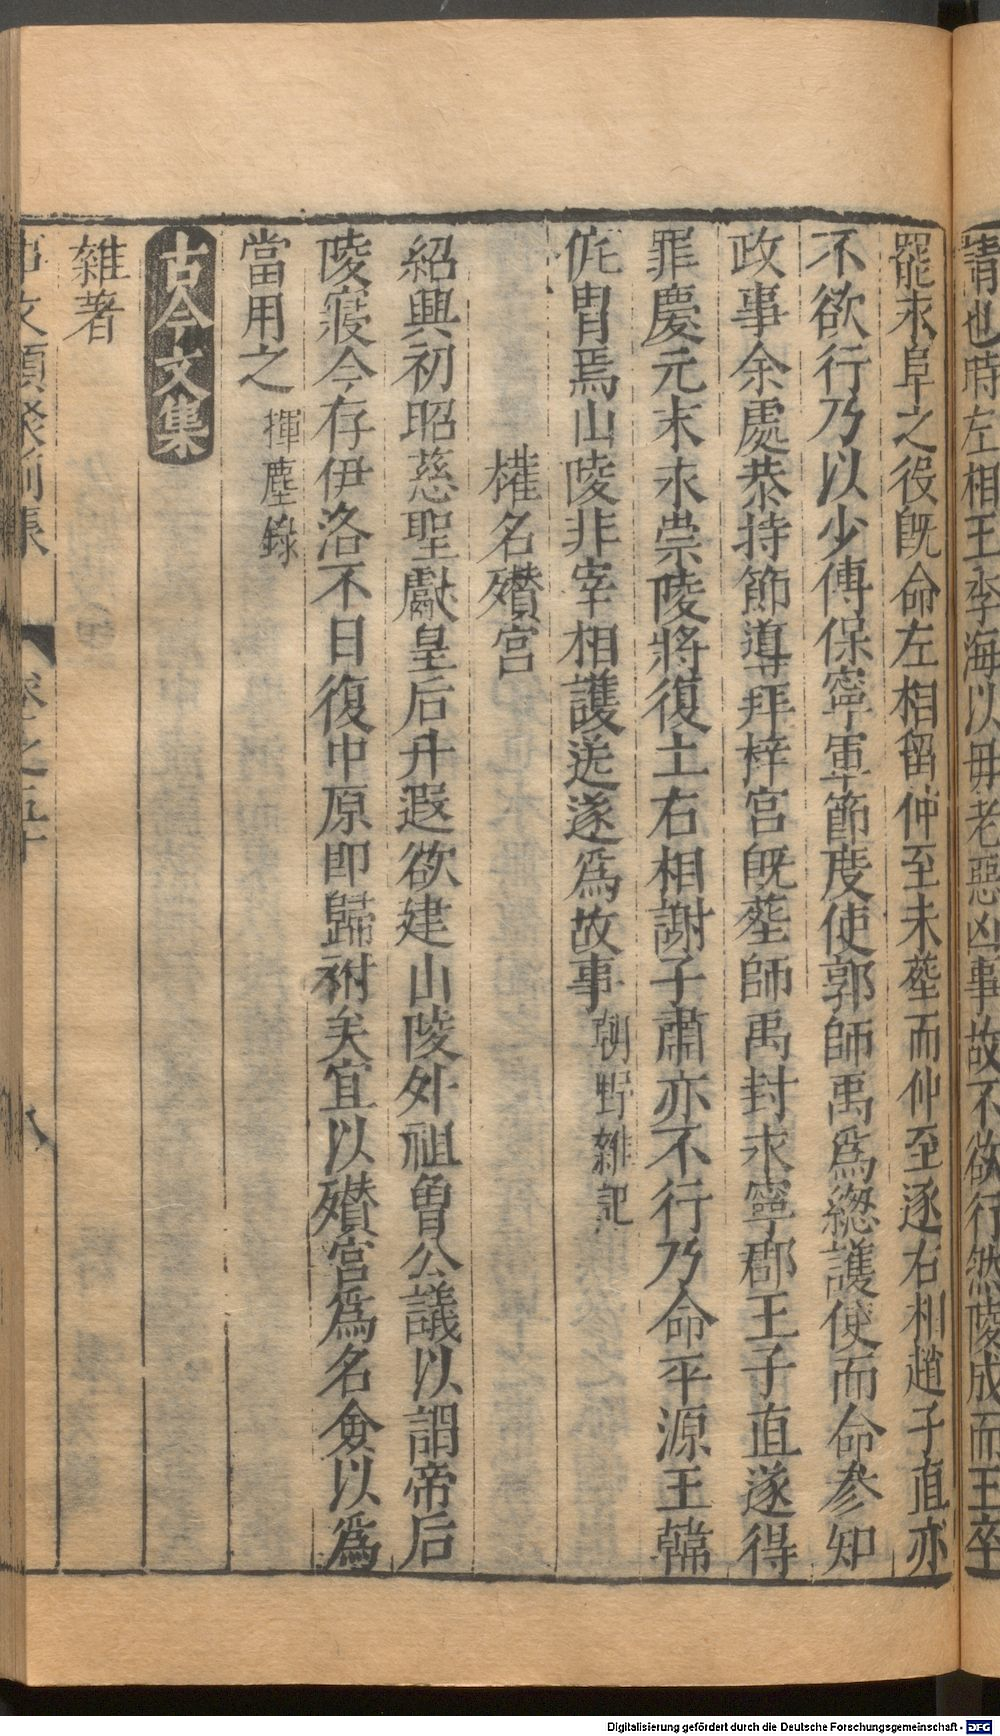 請也時左相王季海以毋老惡凶事故不欲行然陵成而王卒
罷永阜之役既命左相留仲至未葬而仲至逐右相趙子直亦
不欲行乃以少傅保寧軍節度使郭師禹爲總護使而命參知
政事余處恭持節導拜梓宮既葬師禹封永寧郡王子直遂得
罪慶元末永崇陵將復土右相謝子肅亦不行乃命平源王韓
侂胄焉山陵非宰相護送遂爲故事 朝野雜記
權名殯宮
紹興初昭慈聖獻皇后升遐欲建山陵外祖曾公議以謂帝后
陵寢今存伊洛不日復中原即歸祔矣宜以殯宮爲名僉以爲
當用之 揮麈錄
古今文集
雜著
事文類聚前集 卷之五十 八
Digitalisierung gefördert durch die Deutsche Forschungsgemeinschaft - DFG